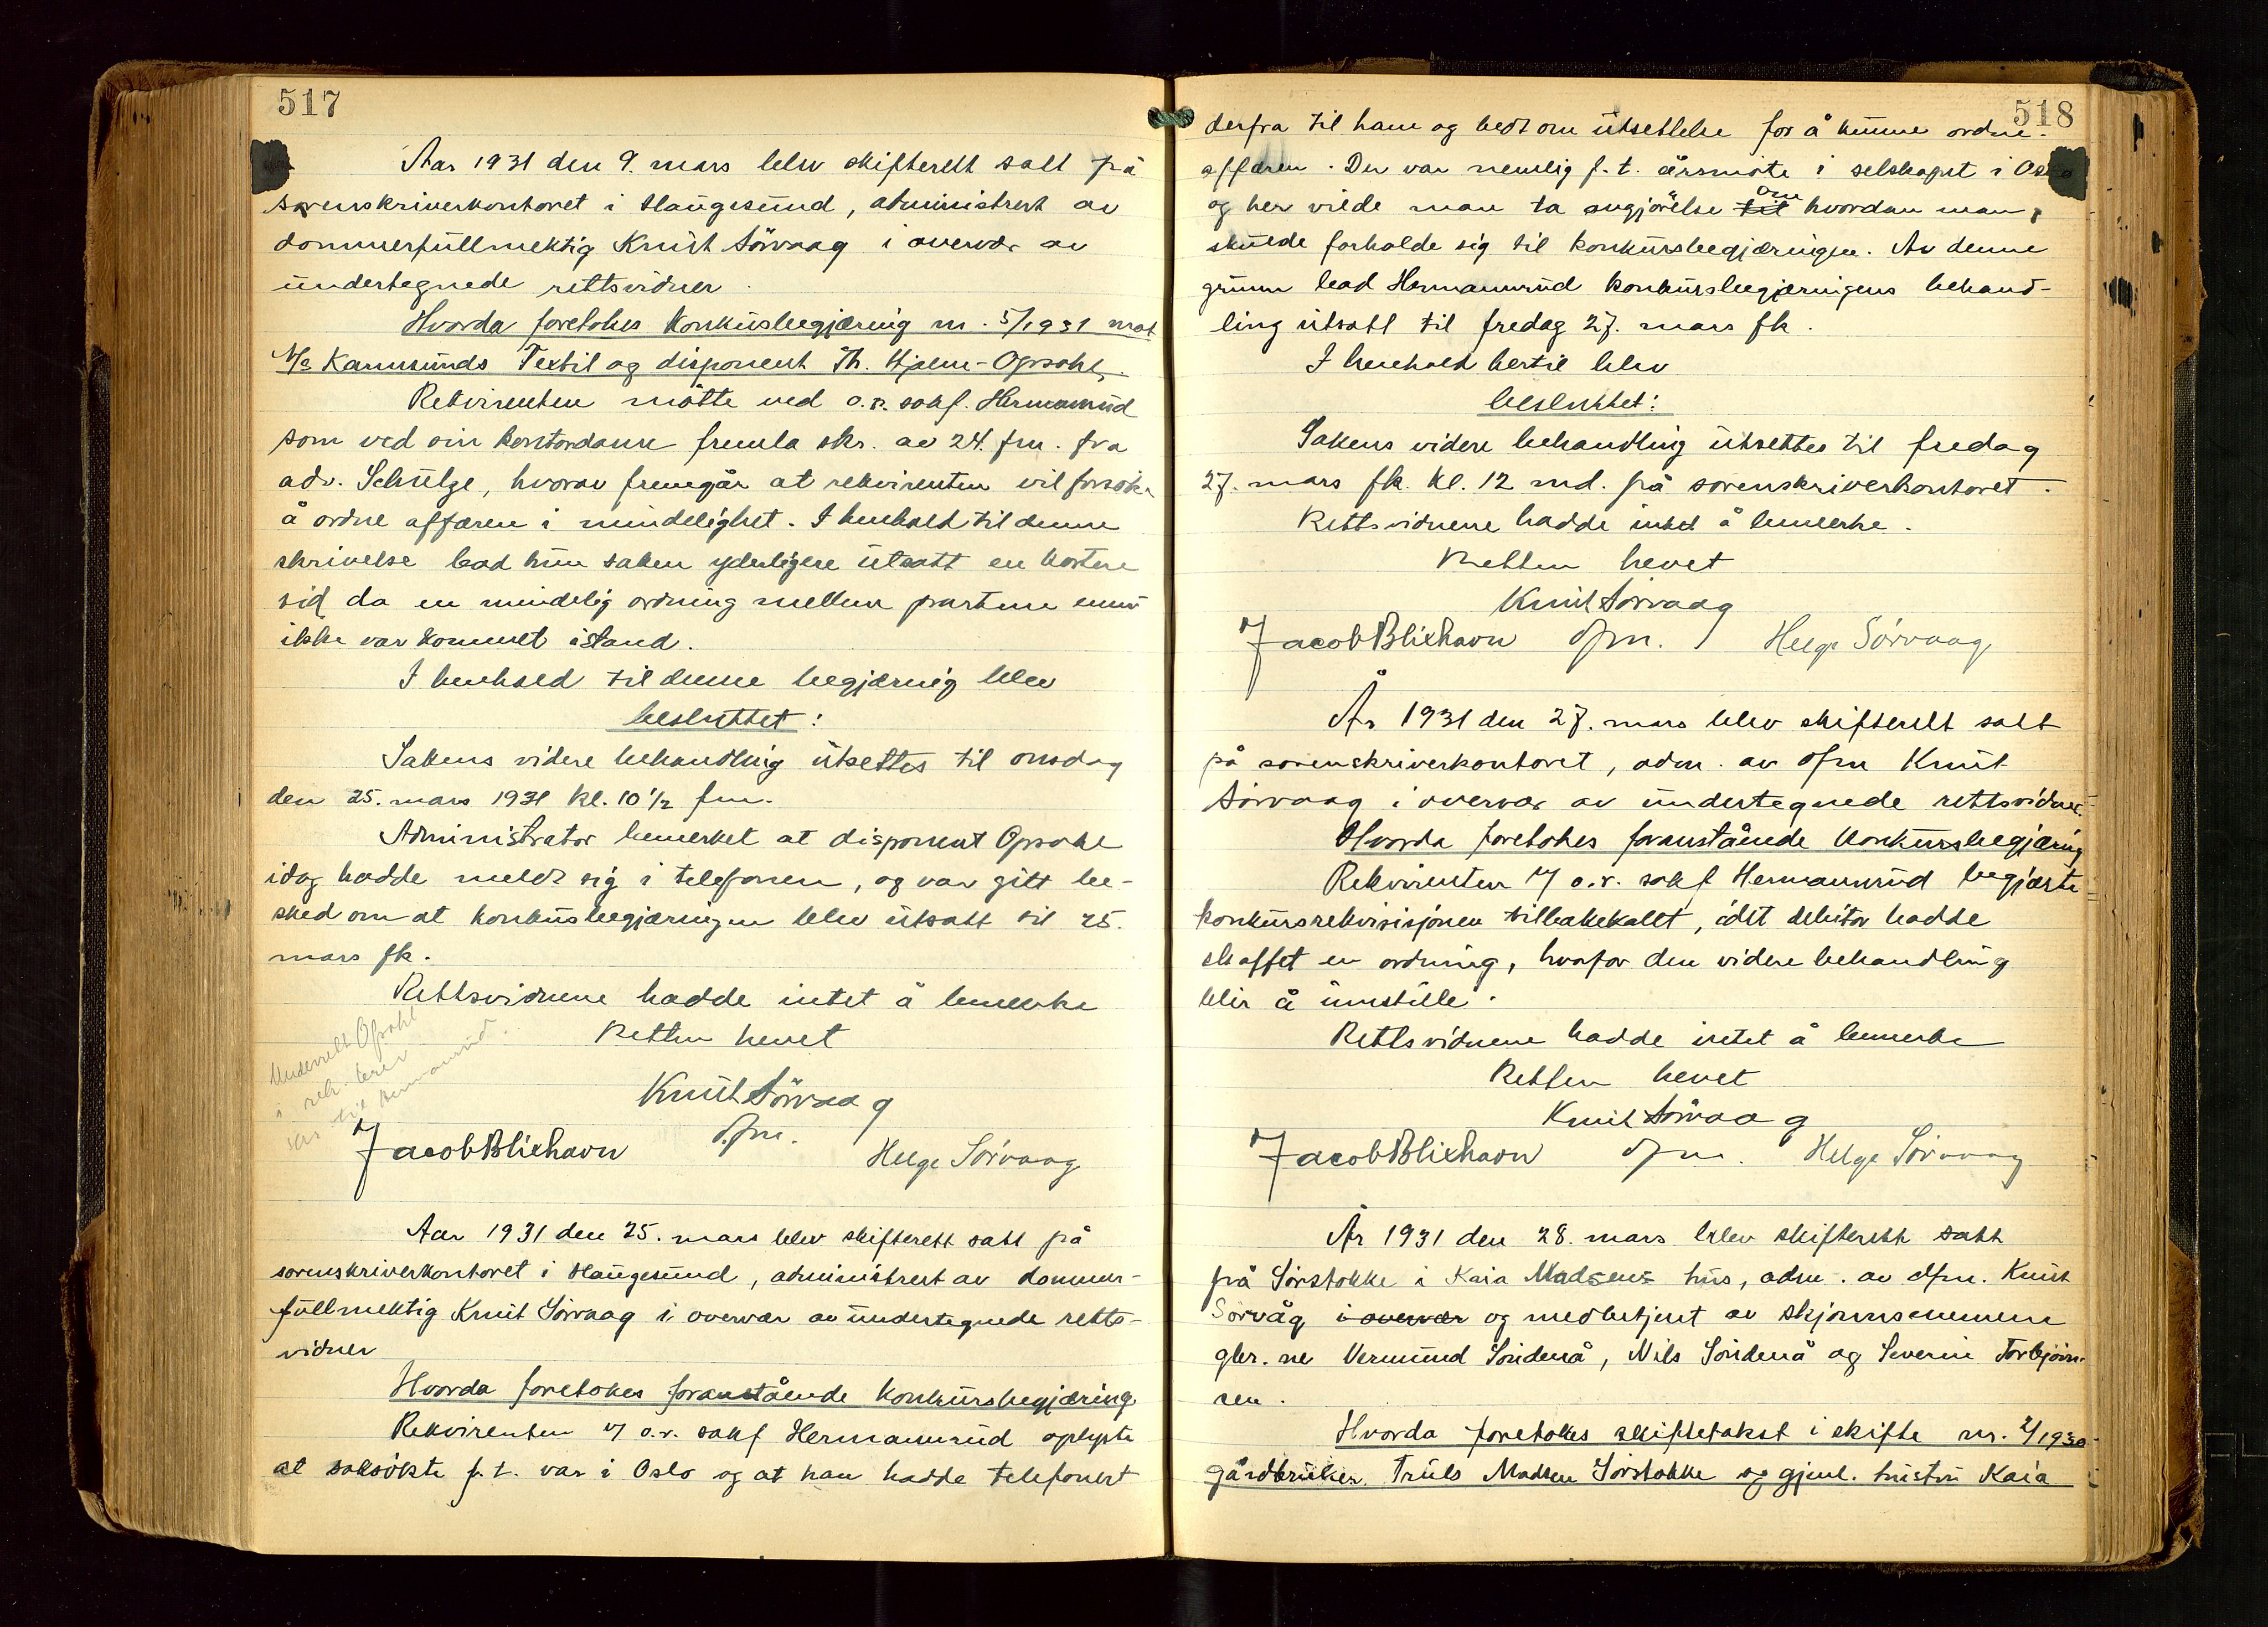 517
Aar 1931 den 9. mars blev skifterett satt på
sorenskriverkontoret i Haugesund, administrert av
dommerfullmektig Knut Sörvaag i overvær av
undertegnede rettsvidner.
Hvorda foretokes konkusbegjæring nr. 5/1931 mot
A/s Karmsunds Textil og disponent Th. Hjelm-Opsahl.
Rekvirenten mötte ved o.r. sakf. Hermanrud
som ved sin kontordame fremla skr. av 24. fm. fra
adv. Schulze, hvorav fremgår at rekvirenten vil forsöke
å ordne affæren i mindelighet. I henhold til denne
skrivelse bad hun saken yderligere utsatt en kortere
tid da en mindelig ordning mellem partene ennu
ikke var kommet istand.
I henhold til denne begjæring blev
besluttet:
Sakens videre behandling utsettes til onsdag
den 25. mars 1931 kl. 10 1/2 fm.
Administrator bemerket at disponent Opsahl
idag hadde meldt sig i telefonen, og var gitt be-
sked om at konkusbegjæringen blev utsatt til 25.
mars fk.
Rettsvidnene hadde intet å bemerke
Retten hevet
Underrett Opsahl
i rek. brev
skr. til Hermanrud.
Knut Sörvaag
dfm.
Jacob Blixhavn Helge Sörvaag
Aar 1931 den 25. mars blev skifterett satt på
sorenskriverkontoret i Haugesund, administrert av dommer-
fullmektig Knut Sörvaag i overvær av undertegnede retts-
vidner
Hvorda foretokes foranstående konkursbegjæring.
Rekvirenten v/ o.r. sakf Hermannrud oplyste
at saksökte f.t. var i Oslo og at han hadde telefonert
518
derfra til ham og bedt om utsettelse for å kunne ordne
affæren. Der var nemlig f.t. årsmöte i selskapet i Oslo
og her vilde man ta avgjörelse til om hvordan man
skulde forholde sig til konkursbegjæringen. Av denne
grunn bad Hermannrud konkursbegjæringens behand-
ling utsatt til fredag 27. mars fk.
I henhold hertil blev
besluttet:
Sakens videre behandling utsettes til fredag
27. mars fk. kl. 12 md. på sorenskriverkontoret.
Rettsvidnene hadde intet å bemerke.
Retten hevet
Knut Sörvaag
Jacob Blixhavn dfm. Helge Sörvaag
År 1931 den 27. mars blev skifterett satt
på sorenskriverkontoret, adm. av dfm Knut
Sörvaag i overvær av undertegnede rettsvidner.
Hvorda foretokes foranstående konkursbegjæring
Rekvirenten v/ o.r. sakf Hermannrud begjærte
konkursrekvisisjonen tilbakekallt, idet debitor hadde
skaffet en ordning, hvorfor den videre behandling
blir å innstille.
Rettsvidnene hadde intet å bemerke
Retten hevet
Knut Sörvaag
Jacob Blixhavn dfm. Helge Sörvaag
År 1931 den 28. mars blev skifterett satt
på Sörstokke i Kaia Madsens hus, adm. av dfm. Knut
Sörvåg i overvær og medbetjent av skjönnsmennene
gbr.ne Vermund Söndenå, Nils Söndenå og Severin Torbjörn-
sen.
Hvorda foretokes skiftetakst i skifte nr. 2/1930
gårdbruker Truls Madsen Sörstokke og gjenl. hustru Kaia